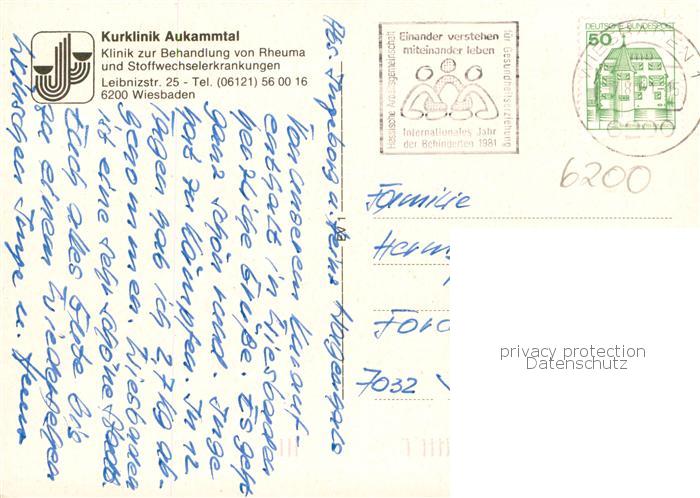 Kurklinik Aukammtal
Klinik zur Behandlung von Rheuma
und Stoffwechselerkrankungen
Leibnizstr. 25 - Tel. (06121) 56 00 16
6200 Wiesbaden
Abs. Ingeborg u.
Von unserem Kurauf-
enthalt in Wiesbaden
herzliche Grüße. Es geht
ganz schön rund. Inge
hat zu kämpfen. In 12
Tagen hab ich 2,7 kg ab-
genommen. Wiesbaden
ist eine sehr schöne Stadt.
Euch alles Gute bis
zu einem Wiedersehen
wünschen Inge u.
Hessische Arbeitsgemeinschaft
Einander verstehen
miteinander leben
für Gesundheitserziehung
Internationales Jahr
der Behinderten 1981
DEUTSCHE BUNDESPOST
50
6200
6200
Familie
Herm
7032
privacy protection
Datenschutz